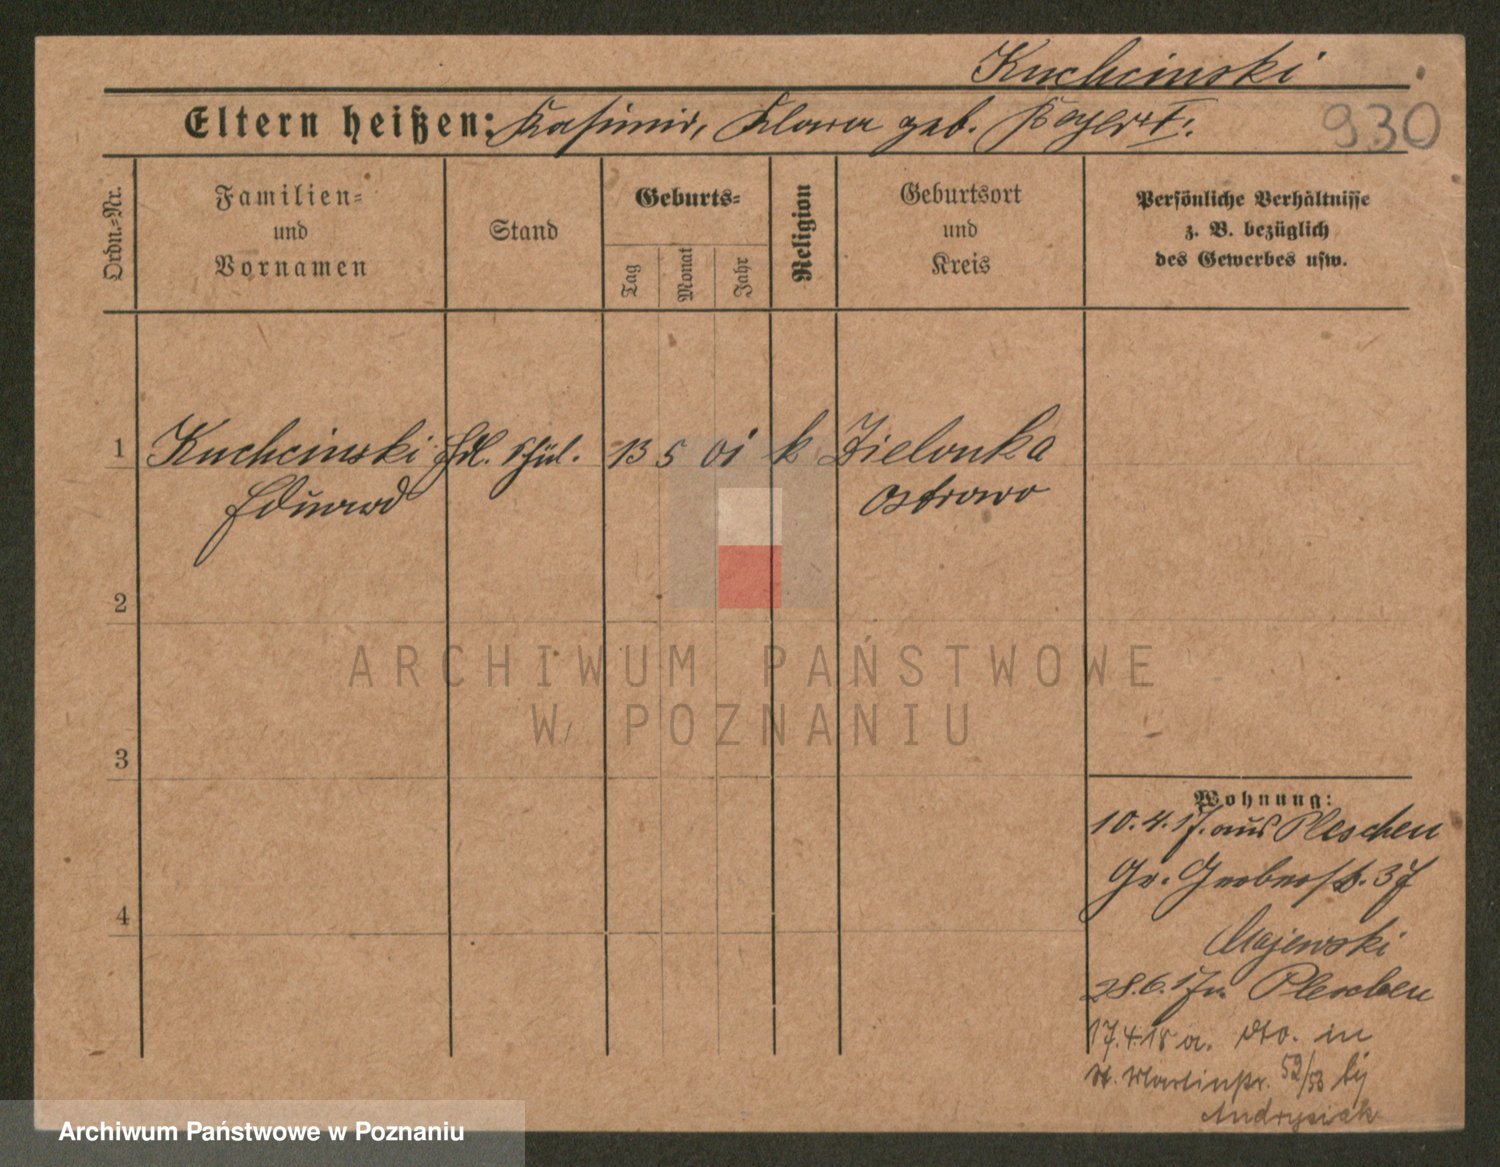 Kuchcinski
Eltern heißen: Kasimir, Klara geb.
930
Ordn.-Nr.
Familien-
und
Vornamen
Stand
Geburts-
Tag
Monat
Jahr
Religion
Geburtsort
und
Kreis
Persönliche Verhältnisse
z. B. bezüglich
des Gewerbes usw.
1 Kuchcinski Hdl. Schül. 13 5 01 k Zielonka
Eduard Ostrowo
2
3
4
Wohnung:
10.4.17. aus Pleschen
Gr. Gerberstr. 37
Majewski
28.6.17 n. Pleschen
17.4.18 a. dto. in
St. Martinstr. 52/53 bj
Andrysiak
ARCHIWUM PAŃSTWOWE
W POZNANIU
Archiwum Państwowe w Poznaniu